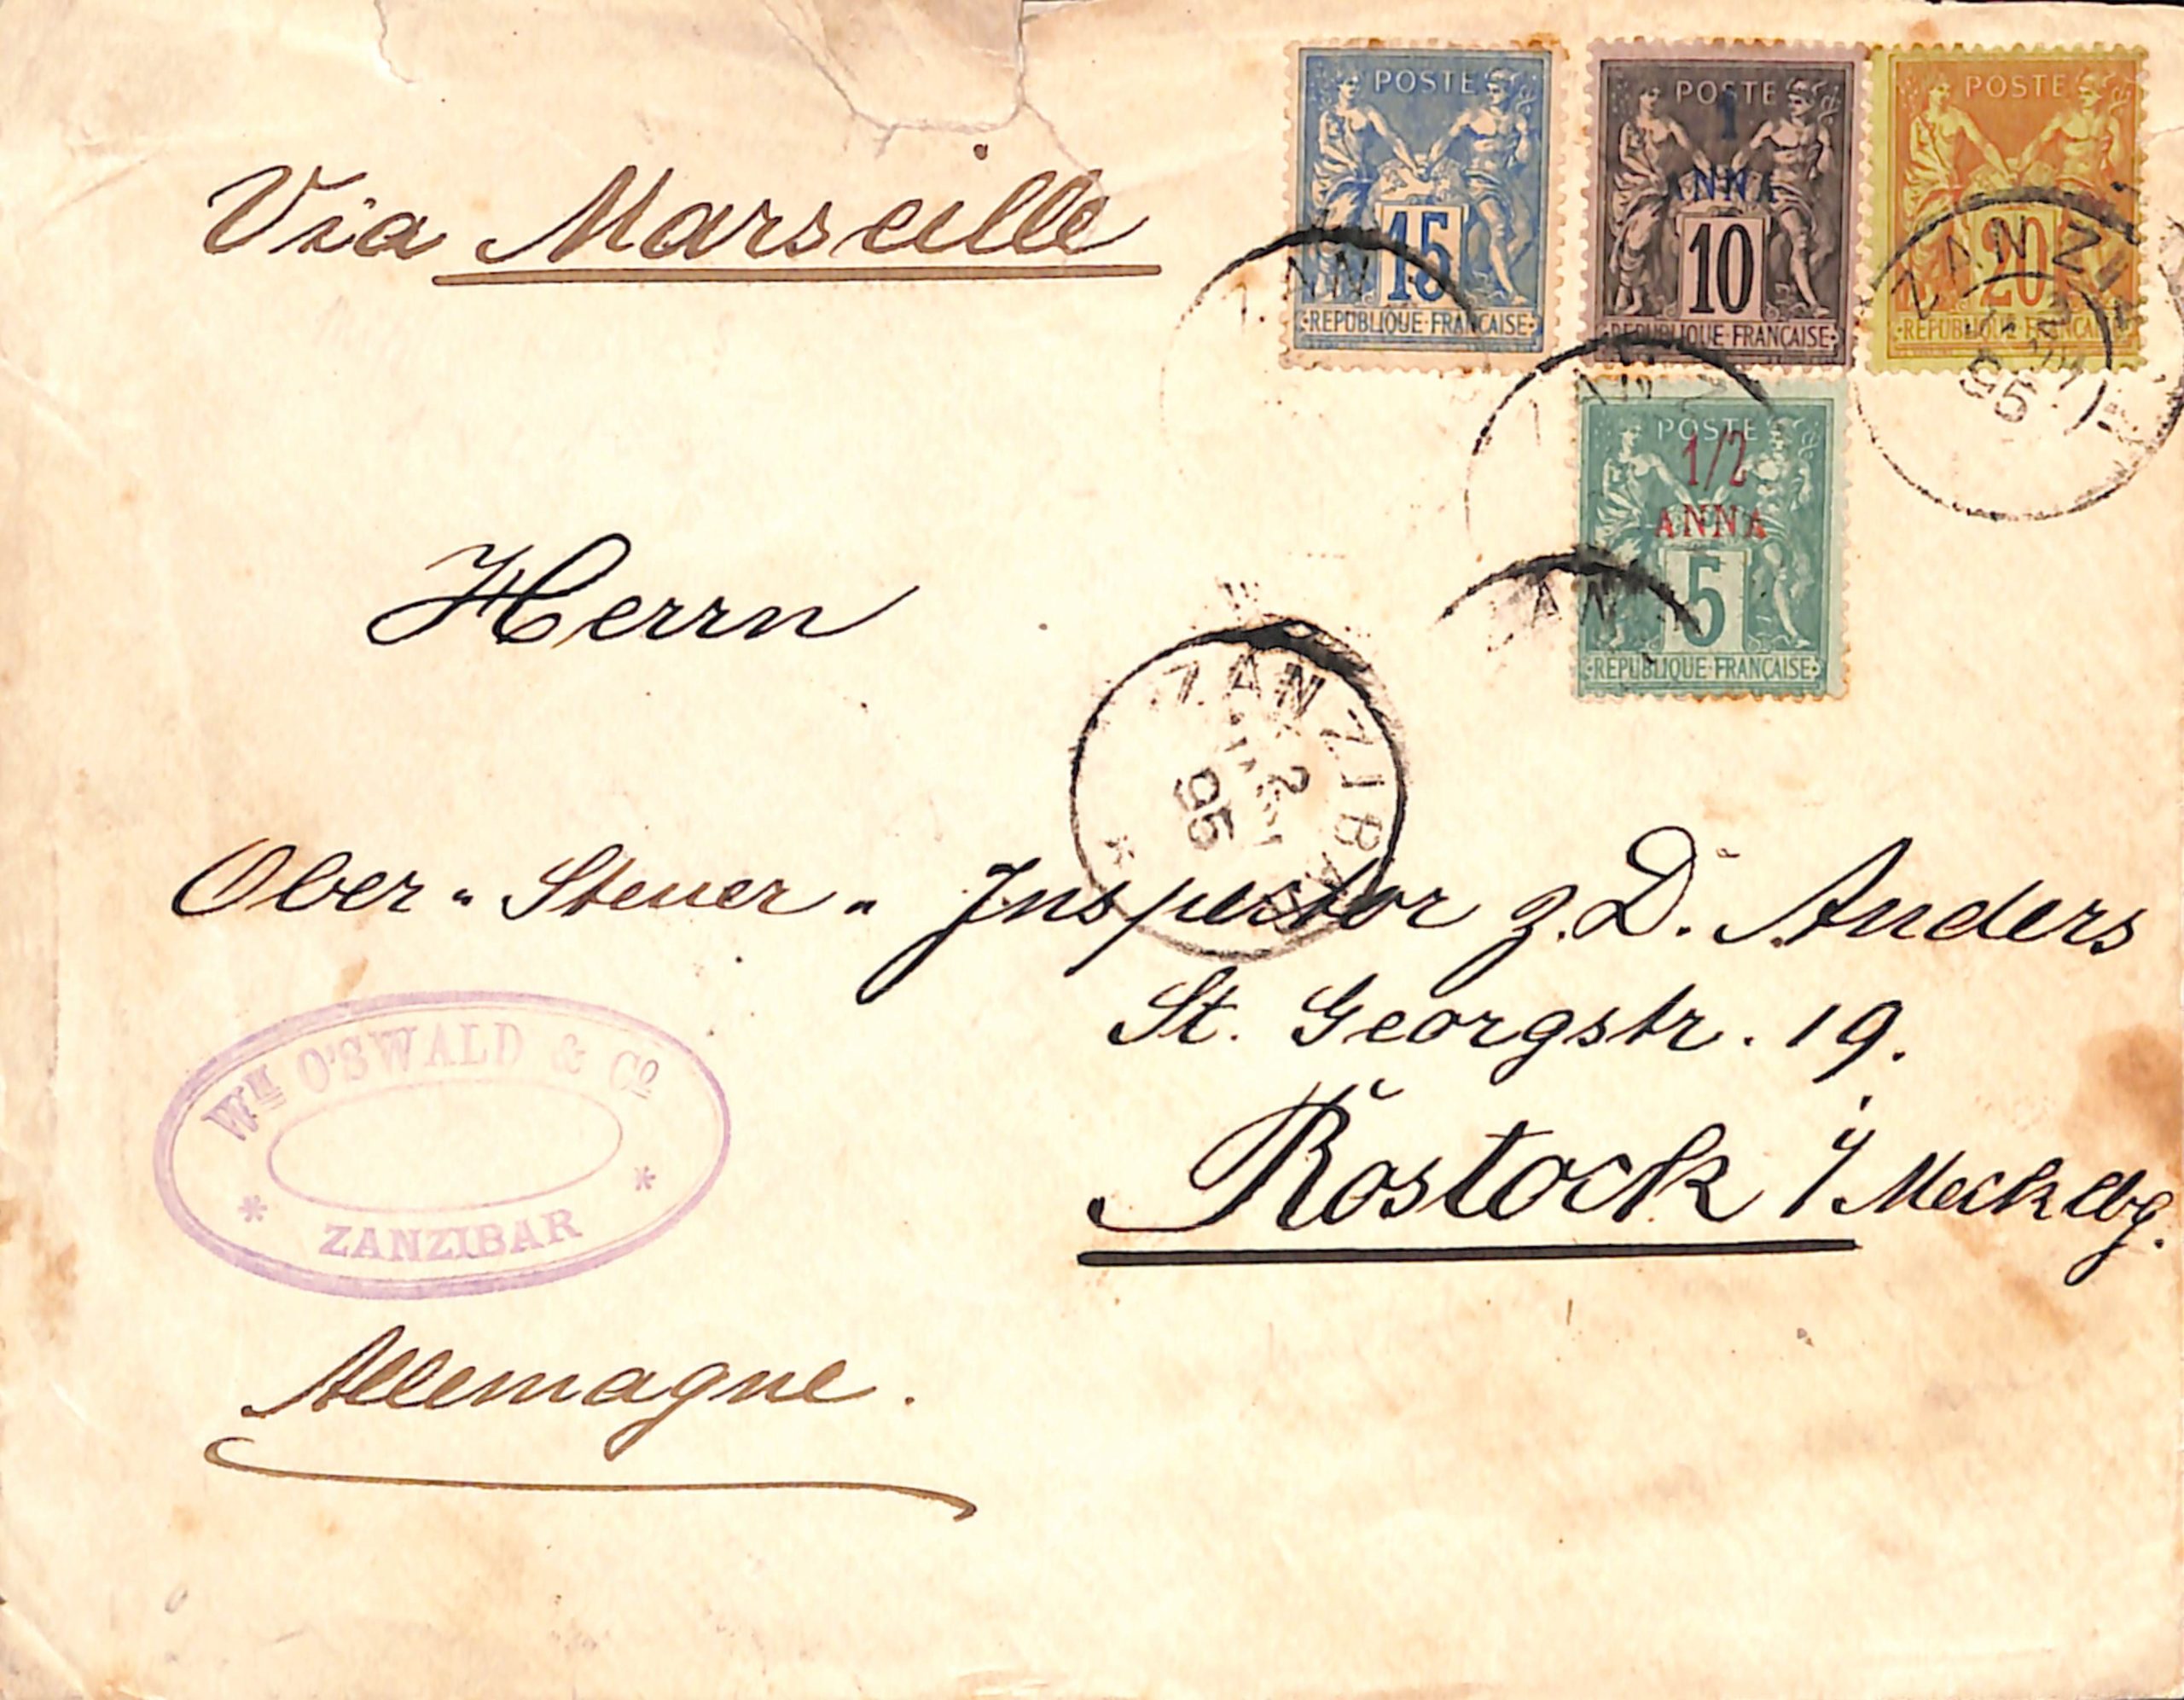 POSTE
15
REPUBLIQUE FRANCAISE
POSTE
1
ANNA
10
REPUBLIQUE FRANÇAISE
POSTE
20
REPUBLIQUE FRANCAISE
ZANZIBAR
95
Via Marseille
POSTE
1/2
ANNA
5
REPUBLIQUE FRANÇAISE
Herrn
ZANZIBAR
2
95
Ober-Steuer-Inspector z. D. Anders
St. Georgstr. 19.
Rostock i/Mecklbg.
WM O'SWALD & Co
* ZANZIBAR *
Allemagne.